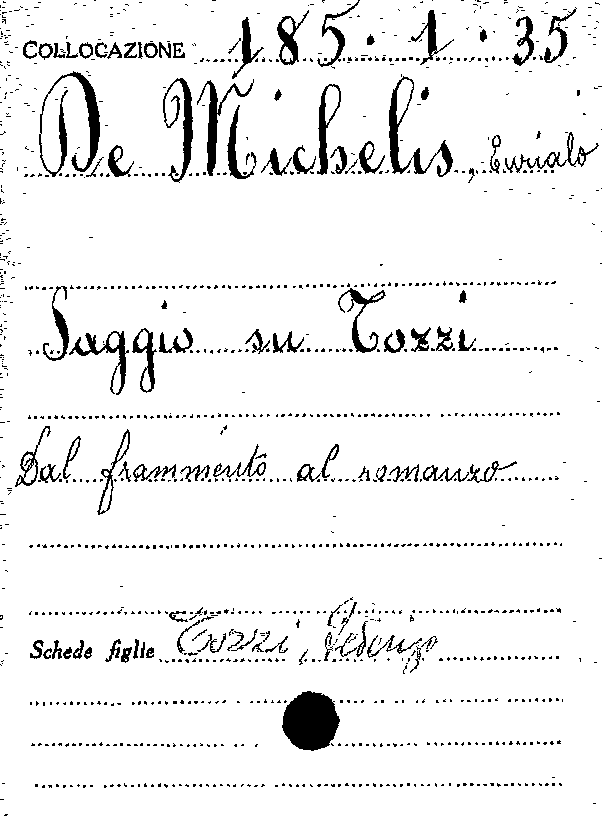 COLLOCAZIONE 185.1.35
De Michelis, Eurialo
Saggio su Tozzi
Dal frammento al romanzo
Schede figlie Tozzi, Federigo